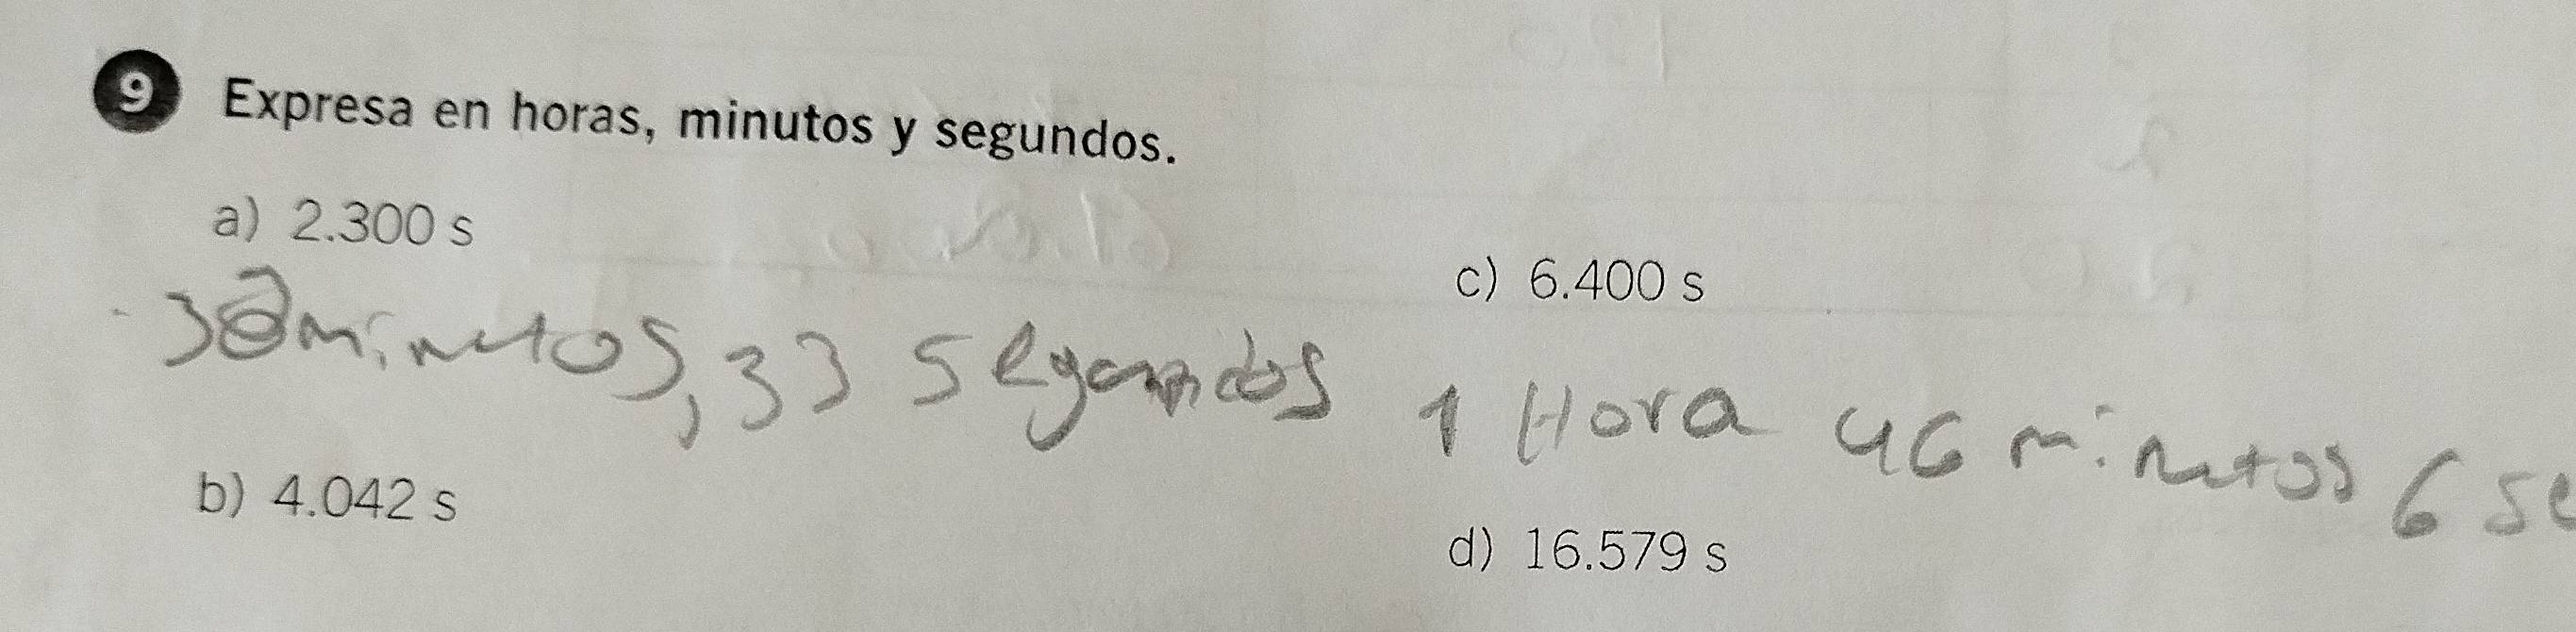 9 Expresa en horas, minutos y segundos.
a) 2.300 s
38 minutos, 33 segundos
b) 4.042 s
c) 6.400 s
1 Hora 46 minutos 6 se
d) 16.579 s